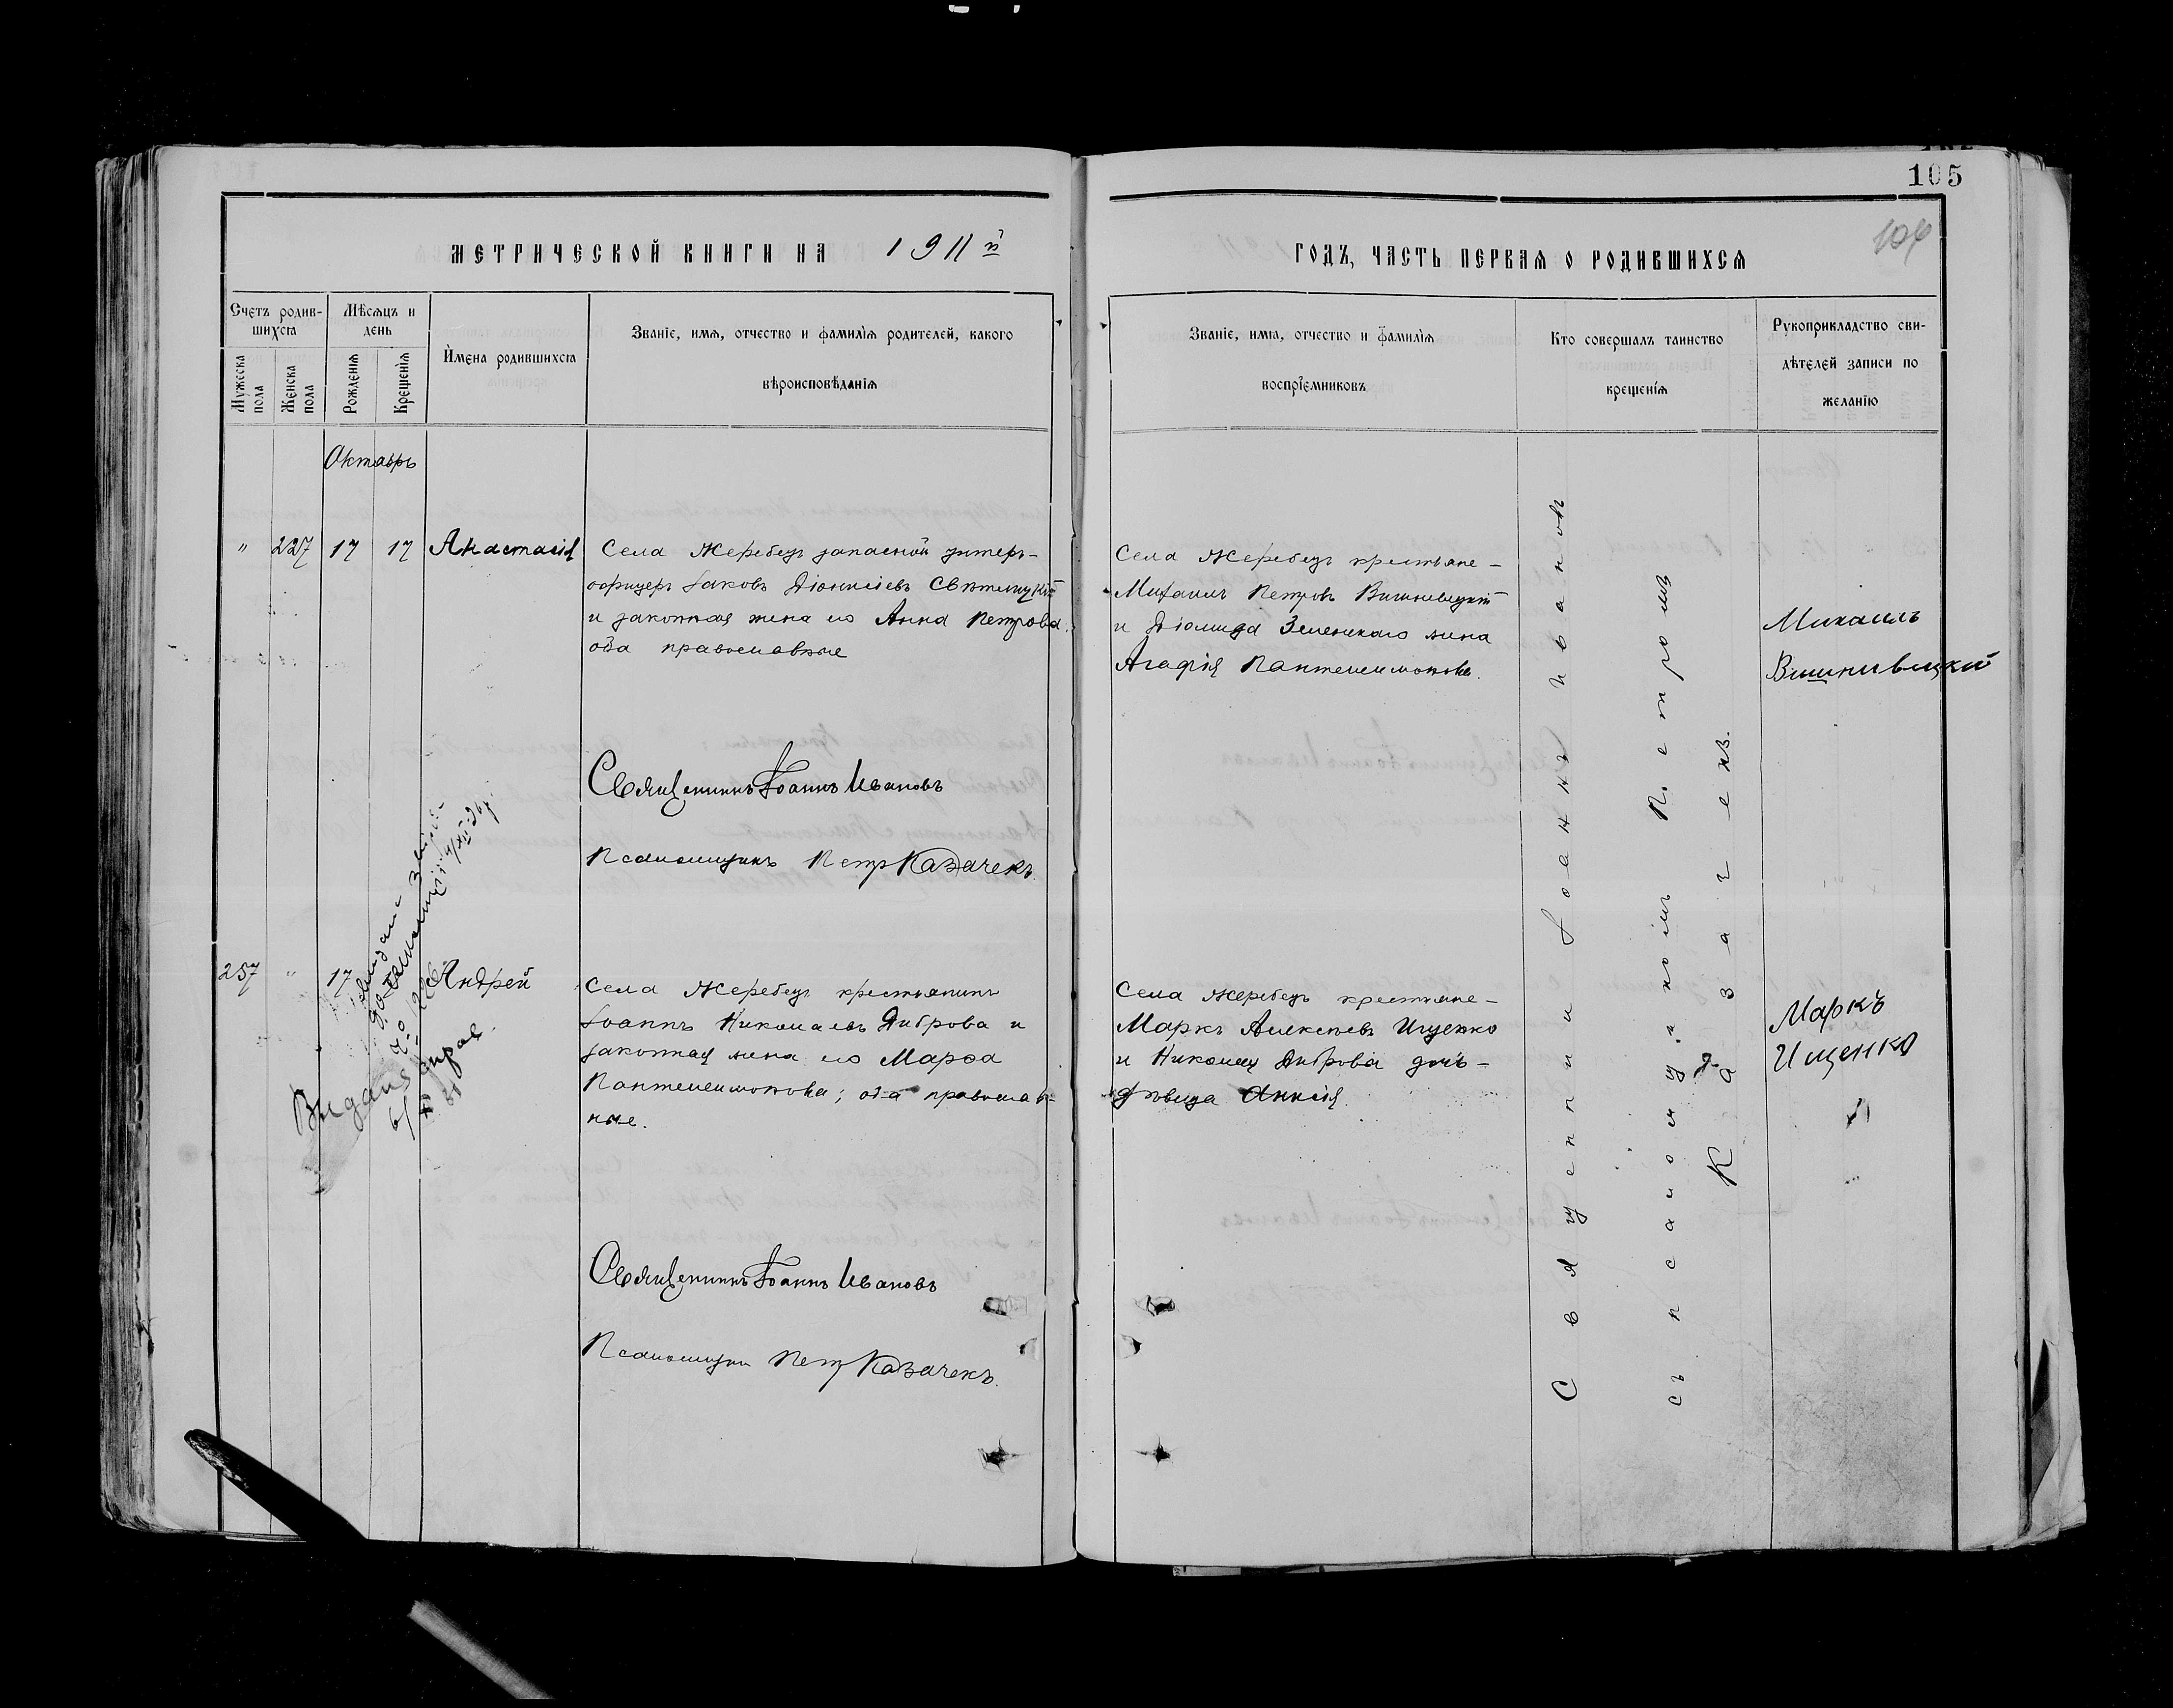 105
106
МЕТРИЧЕСКОЙ КНИГИ НА 1911й
ГОДЪ, ЧАСТЬ ПЕРВАЯ О РОДИВШИХСЯ
Счетъ родив-
шихся
Мужеска
пола
Женска
пола
Мѣсяцъ и
день
Рожденія
Крещенія
Имена родившихся
Званіе, имя, отчество и фамилія родителей, какого
вѣроисповѣданія
Званіе, имя, отчество и фамилія
воспріемниковъ
Кто совершалъ таинство
крещенія
Рукоприкладство сви-
дѣтелей записи по
желанію
Октябрь
" 227 17 17 Анастасія
Села Жеребецъ запасной унтеръ-
офицеръ Іаковъ Діонисіевъ Свѣтлицкій
и законная жена его Анна Петрова
оба православные
Священникъ Іоаннъ Ивановъ
Псаломщикъ Петръ Казачекъ.
Села Жеребецъ крестьяне-
Михаилъ Петровъ Вишневецкій
и Діомида Зеленскаго жена
Агафія Пантелеимонова.
Михаилъ
Вишнивецкій
257 " 17 Андрей
Села Жеребецъ крестьянинъ
Іоаннъ Николаевъ Диброва и
законная жена его Марѳа
Пантелеимонова; оба православ-
ные.
Священникъ Іоаннъ Ивановъ
Псаломщикъ Петръ Казачекъ.
Села Жеребецъ крестьяне-
Маркъ Алексѣевъ Ищенко
и Николая Диброва дочь-
дѣвица Анисія.
Маркъ
Ищенко
Священникъ Іоаннъ Ивановъ
съ псаломщикомъ Петромъ
Казачекъ.
Видано